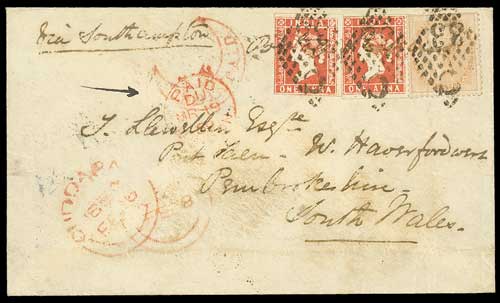 Via Southampton
INDIA
ONE ANNA
ONE ANNA
PAID
J. Llewellin Esqre
W. Haverfordwest
Pembrokeshire
South Wales.
CUDDAPA